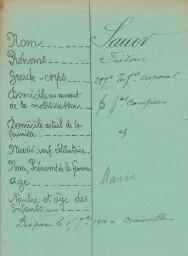 Nom Sauer
Prénoms Frédéric
Grade - corps Inf. Caporal
Domicile au moment
de la mobilisation
Domicile actuel de la
famille
Marié, veuf, célibataire
Nom, Prénoms de la femme Marie
Age
Nombre et âge des
Enfants
Disparu le 1914 à